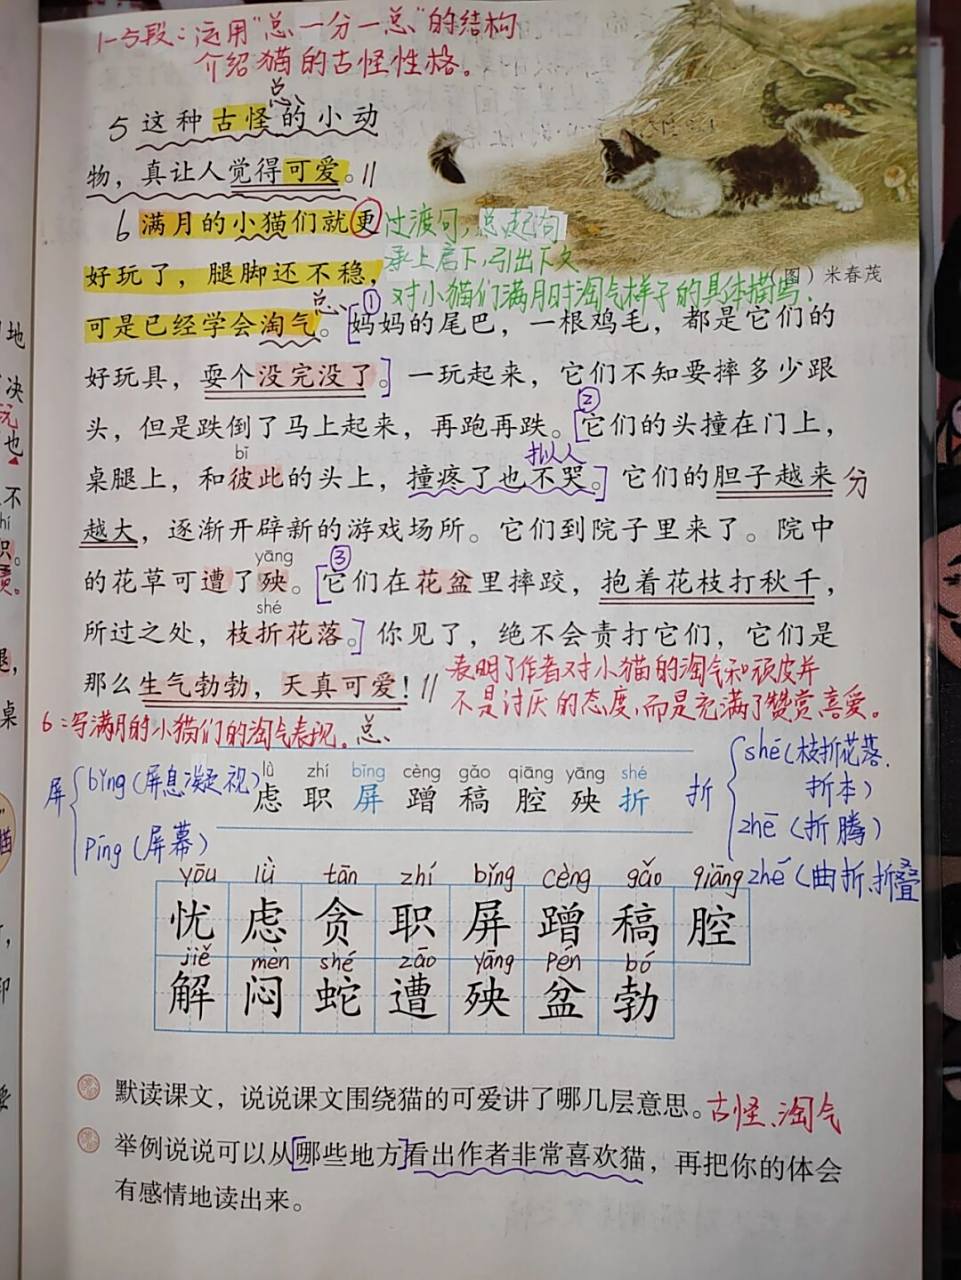 1-5段：运用“总一分一总”的结构
介绍猫的古怪性格。
总
5 这种古怪的小动
物，真让人觉得可爱。//
6 满月的小猫们就更
过渡句，总起句
好玩了，腿脚还不稳，
承上启下，引出下文
（图）米春茂
对小猫们满月时淘气样子的具体描写．
总 ①
可是已经学会淘气。[妈妈的尾巴，一根鸡毛，都是它们的
好玩具，耍个没完没了。]一玩起来，它们不知要摔多少跟
②
头，但是跌倒了马上起来，再跑再跌。[它们的头撞在门上，
bǐ 拟人
桌腿上，和彼此的头上，撞疼了也不哭。]它们的胆子越来 分
越大，逐渐开辟新的游戏场所。它们到院子里来了。院中
yāng ③
的花草可遭了殃。[它们在花盆里摔跤，抱着花枝打秋千，
shé
所过之处，枝折花落。]你见了，绝不会责打它们，它们是
那么生气勃勃，天真可爱！//
表明了作者对小猫的淘气和顽皮并
不是讨厌的态度，而是充满了赞赏、喜爱。
6：写满月的小猫们的淘气表现。总
屏 bǐng（屏息凝视）
píng（屏幕）
lǜ zhí bǐng cèng gǎo qiāng yāng shé
虑 职 屏 蹭 稿 腔 殃 折
折 shé（枝折花落．
折本）
zhē（折腾）
zhé（曲折、折叠
yōu lǜ tān zhí bǐng cèng gǎo qiāng
忧 虑 贪 职 屏 蹭 稿 腔
jiě mèn shé zāo yāng pén bó
解 闷 蛇 遭 殃 盆 勃
默读课文，说说课文围绕猫的可爱讲了哪几层意思。古怪、淘气
举例说说可以从[哪些地方]看出作者非常喜欢猫，再把你的体会
有感情地读出来。